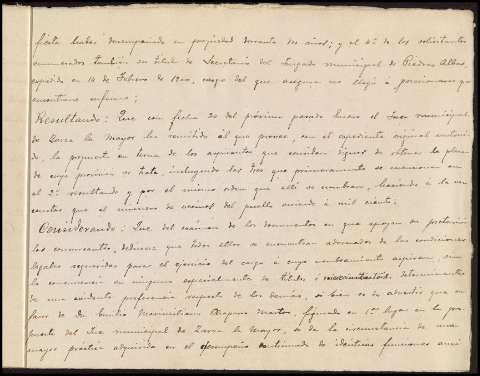 fiesta haber desempeñado en propiedad durante dos años; y el 4º de los solicitantes
enumerados también su título de Secretario del Juzgado municipal de Piedras Albas,
expedido en 14 de Febrero de 1900, cargo del que asegura no llegó á posesionarse por
encontrarse enfermo;
Resultando: Que con fecha 20 del próximo pasado Enero el Juez municipal
de Zarza la Mayor ha remitido al que provee, con el expediente original instrui-
do, la propuesta en terna de los aspirantes que considera dignos de obtener la plaza
de cuya provisión se trata, incluyendo los tres que primeramente se enumeran en
el 2º resultando y por el mismo orden que allí se nombran, haciendo á la vez
constar que el número de vecinos del pueblo asciende á mil ciento;
Considerando: Que del exámen de los documentos en que apoyan su pretensión
los concursantes, dedúcese que todos ellos se encuentran adornados de las condiciones
legales requeridas para el ejercicio del cargo á cuyo nombramiento aspiran, sin
la concurrencia en ninguno especialmente de títulos ó determinantes
de una evidente preferencia respecto de los demás, si bien es de advertir que en
favor de Dn. Emilio Maximiliano Martos, figurado en 1er lugar en la pro-
puesta del Juez municipal de Zarza la Mayor, es de la circunstancia de una
mayor práctica adquirida en el desempeño continuado de idénticas funciones